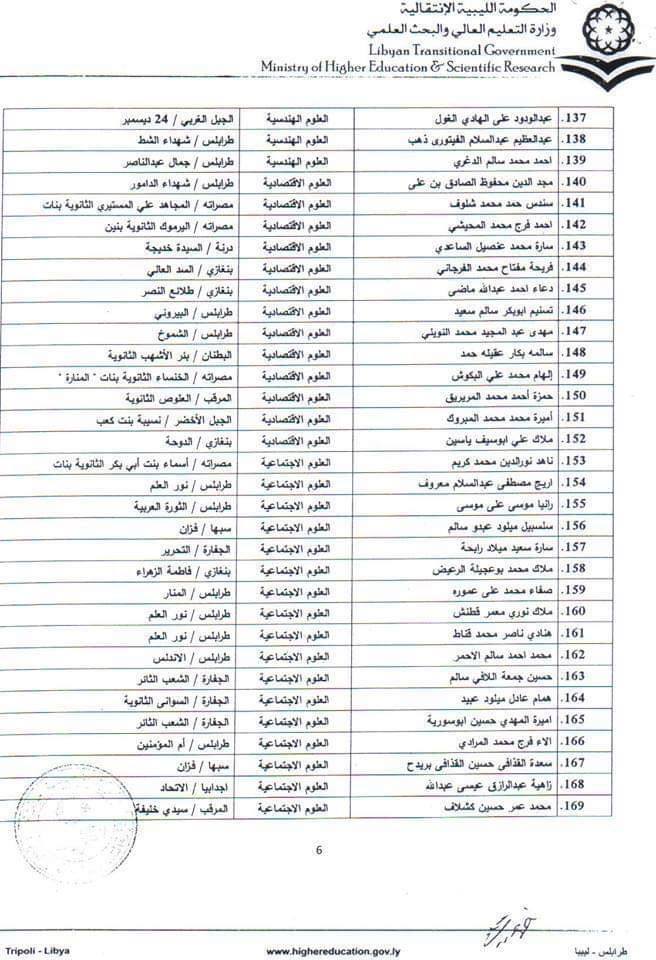 الحكومة الليبية الإنتقالية
وزارة التعليم العالي والبحث العلمي
Libyan Transitional Government
Ministry of Higher Education & Scientific Research
137. عبدالودود على الهادي الغول العلوم الهندسية الجبل الغربي / 24 ديسمبر
138. عبدالعظيم عبدالسلام الفيتورى ذهب العلوم الهندسية طرابلس / شهداء الشط
139. احمد محمد سالم الدغري العلوم الهندسية طرابلس / جمال عبدالناصر
140. مجد الدين محفوظ الصادق بن على العلوم الاقتصادية طرابلس / شهداء الدامور
141. سندس حمد محمد شلوف العلوم الاقتصادية مصراته / المجاهد علي المستيري الثانوية بنات
142. احمد فرج محمد المحيشي العلوم الاقتصادية مصراته / اليرموك الثانوية بنين
143. سارة محمد عنصيل الساعدي العلوم الاقتصادية درنة / السيدة خديجة
144. فريحة مفتاح محمد الفرجاني العلوم الاقتصادية بنغازي / السد العالي
145. دعاء احمد عبدالله ماضى العلوم الاقتصادية بنغازي / طلائع النصر
146. تسنيم ابوبكر سالم سعيد العلوم الاقتصادية طرابلس / البيروني
147. مهدى عبد المجيد محمد النويلي العلوم الاقتصادية طرابلس / الشموخ
148. سالمه بكار عقيله حمد العلوم الاقتصادية البطنان / بئر الأشهب الثانوية
149. إلهام محمد علي البكوش العلوم الاقتصادية مصراته / الخنساء الثانوية بنات " المنارة "
150. حمزة أحمد محمد المريريق العلوم الاقتصادية المرقب / العلوص الثانوية
151. أميرة محمد محمد المبروك العلوم الاقتصادية الجبل الأخضر / نسيبة بنت كعب
152. ملاك علي ابوسيف ياسين العلوم الاقتصادية بنغازي / الدوحة
153. ناهد نورالدين محمد كريم العلوم الاجتماعية مصراته / أسماء بنت أبي بكر الثانوية بنات
154. اريج مصطفى عبدالسلام معروف العلوم الاجتماعية طرابلس / نور العلم
155. رانيا موسى على موسى العلوم الاجتماعية طرابلس / الثورة العربية
156. سلسبيل ميلود عبدو سالم العلوم الاجتماعية سبها / فزان
157. سارة سعيد ميلاد رابحة العلوم الاجتماعية الجفارة / التحرير
158. ملاك محمد بوعجيلة الرعيض العلوم الاجتماعية بنغازي / فاطمة الزهراء
159. صفاء محمد على عموره العلوم الاجتماعية طرابلس / المنار
160. ملاك نوري معمر قطنش العلوم الاجتماعية طرابلس / نور العلم
161. هنادي ناصر محمد قناط العلوم الاجتماعية طرابلس / نور العلم
162. محمد احمد سالم الاحمر العلوم الاجتماعية طرابلس / الاندلس
163. حسين جمعة اللافي سالم العلوم الاجتماعية الجفارة / الشعب الثائر
164. همام عادل ميلود عبيد العلوم الاجتماعية الجفارة / السوانى الثانوية
165. اميرة المهدي حسين ابوسورية العلوم الاجتماعية الجفارة / الشعب الثائر
166. الاء فرج محمد المرادي العلوم الاجتماعية طرابلس / أم المؤمنين
167. سعدة القذافى حسين القذافى بريدح العلوم الاجتماعية سبها / فزان
168. زاهية عبدالرازق عيسى عبدالله العلوم الاجتماعية اجدابيا / الاتحاد
169. محمد عمر حسين كشلاف العلوم الاجتماعية المرقب / سيدي خليفة
6
Tripoli - Libya www.highereducation.gov.ly طرابلس - ليبيا